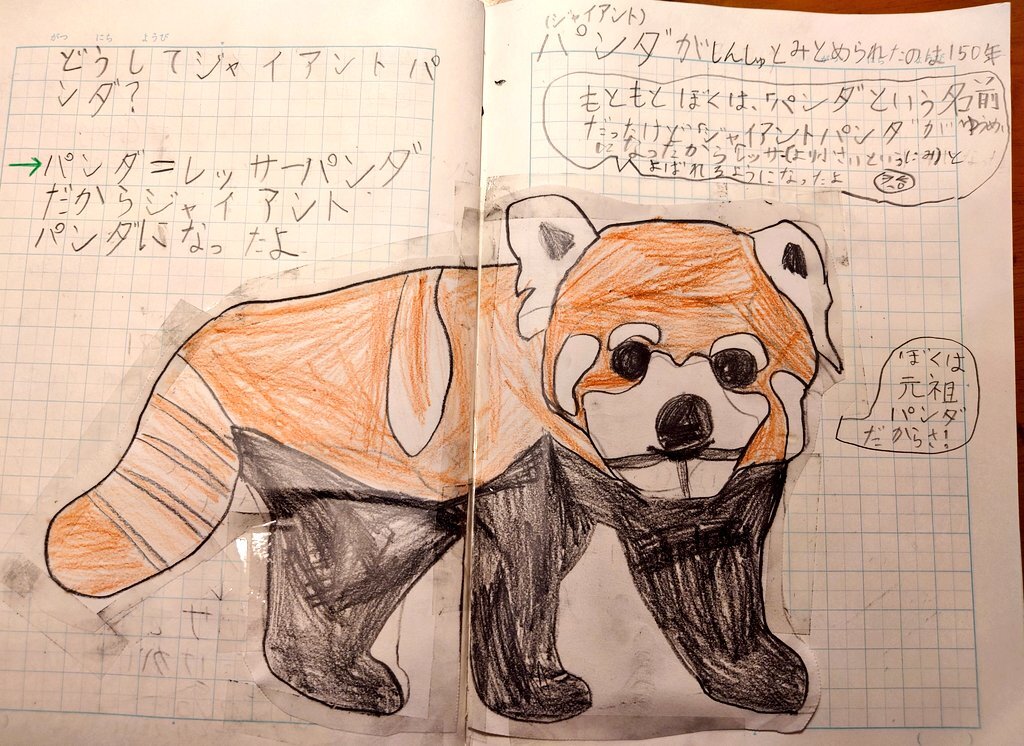 がつ にち ようび
どうしてジャイアントパ
ンダ？
→パンダ＝レッサーパンダ
だからジャイアント
パンダになったよ
(ジャイアント)
パンダがしんしゅとみとめられたのは150年
もともとぼくは、「パンダという名前
だったけど「ジャイアントパンダがゆうめい
になったからレッサー(より小さいといういみ)と
よばれるようになったよ
ぼくは
元祖
パンダ
だからさ!